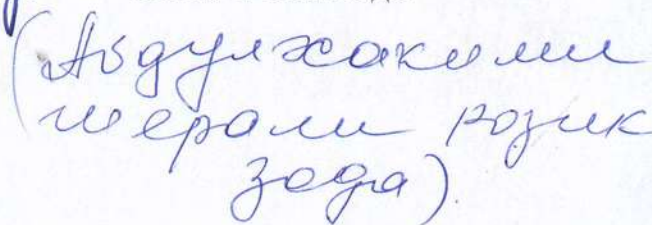 (Абдулхакими
шерали розик
зода)